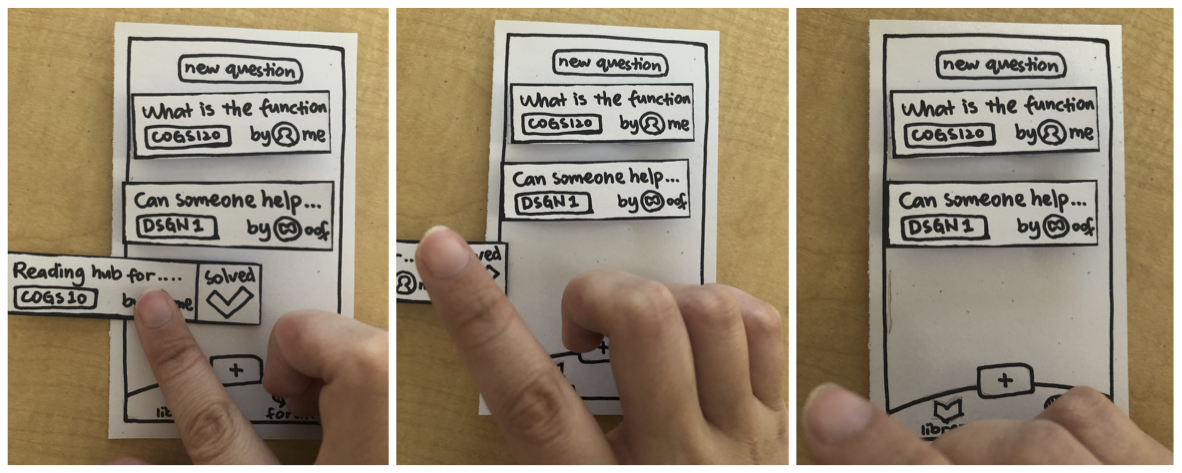 new question
What is the function
COGS120 by me
Can someone help...
DSGN1 by oof
Reading hub for....
COGS10 me
solved
+
new question
What is the function
COGS120 by me
Can someone help...
DSGN1 by oof
+
new question
What is the function
COGS120 by me
Can someone help...
DSGN1 by oof
+